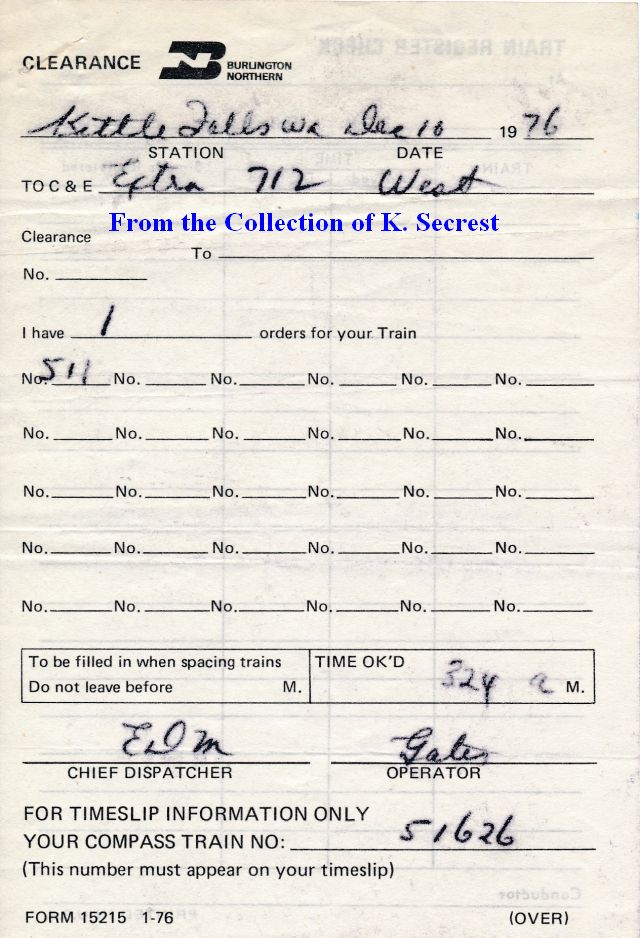 CLEARANCE BURLINGTON NORTHERN
Kettle Falls Wa Dec 10 1976
STATION DATE
TO C & E Extra 712 West
From the Collection of K. Secrest
Clearance
To
No.
I have 1 orders for your Train
No. 511 No. No. No. No. No.
No. No. No. No. No. No.
No. No. No. No. No. No.
No. No. No. No. No. No.
No. No. No. No. No. No.
To be filled in when spacing trains TIME OK'D
Do not leave before M. 324 a M.
EDM Gates
CHIEF DISPATCHER OPERATOR
FOR TIMESLIP INFORMATION ONLY
YOUR COMPASS TRAIN NO: 51626
(This number must appear on your timeslip)
FORM 15215 1-76 (OVER)